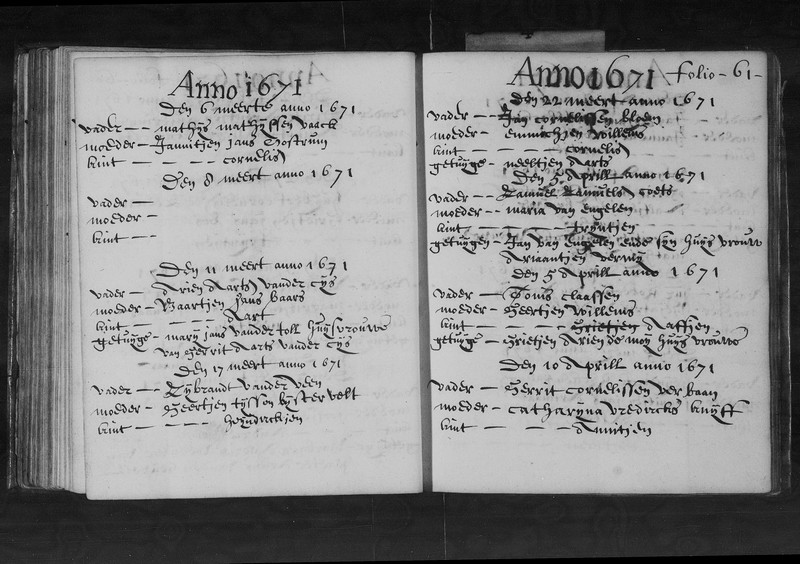 Anno 1671
Den 6 meerte anno 1671
vader — mathijs mathijssen vaack
moeder — Jannitjen jans Oostrum
kint — cornelis
Den 8 meert anno 1671
vader —
moeder —
kint —
Den 11 meert anno 1671
vader — Arien Aarts vander Eijs
moeder — Maartjen Jans baars
kint — Aart
getuijge — marij jans vander toll huijsvrouwe
van Gerrit Aarts vander Eijs
Den 17 meert anno 1671
vader — Sijbrandt vander veen
moeder — Geertjen tijssen bijstervelt
kint — heijndrickjen
Anno 1671 folio - 61 -
Den 22 meert anno 1671
vader — Jan cornelissen bloem
moeder — Emmichjen willems
kint — cornelis
getuijge — neeltjen Aarts
Den 5 Aprill anno 1671
vader — Samuel Samuels coets
moeder — maria van Engelen
kint — trijntjen
getuijgen — Jan van Engelen ende sijn huijs vrouw
Ariaantjen
Den 5 Aprill anno 1671
vader — Tonis claassen
moeder — Geertjen willems
kint — Grietjen
getuijge — Grietjen Arien de moij huijs vrouwe
Den 10 Aprill anno 1671
vader — Gerrit cornelissen ver baan
moeder — catharijna vredricks knijff
kint — Annitjen